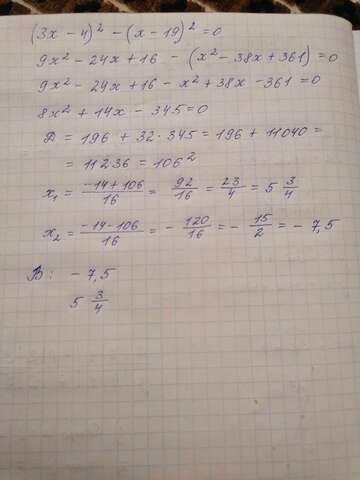 (3x - 4)² - (x - 19)² = 0
9x² - 24x + 16 - (x² - 38x + 361) = 0
9x² - 24x + 16 - x² + 38x - 361 = 0
8x² + 14x - 345 = 0
D = 196 + 32 · 345 = 196 + 11040 =
= 11236 = 106²
x₁ = (-14+106)/16 = 92/16 = 23/4 = 5 3/4
x₂ = (-14-106)/16 = - 120/16 = - 15/2 = - 7,5
В: - 7,5
5 3/4